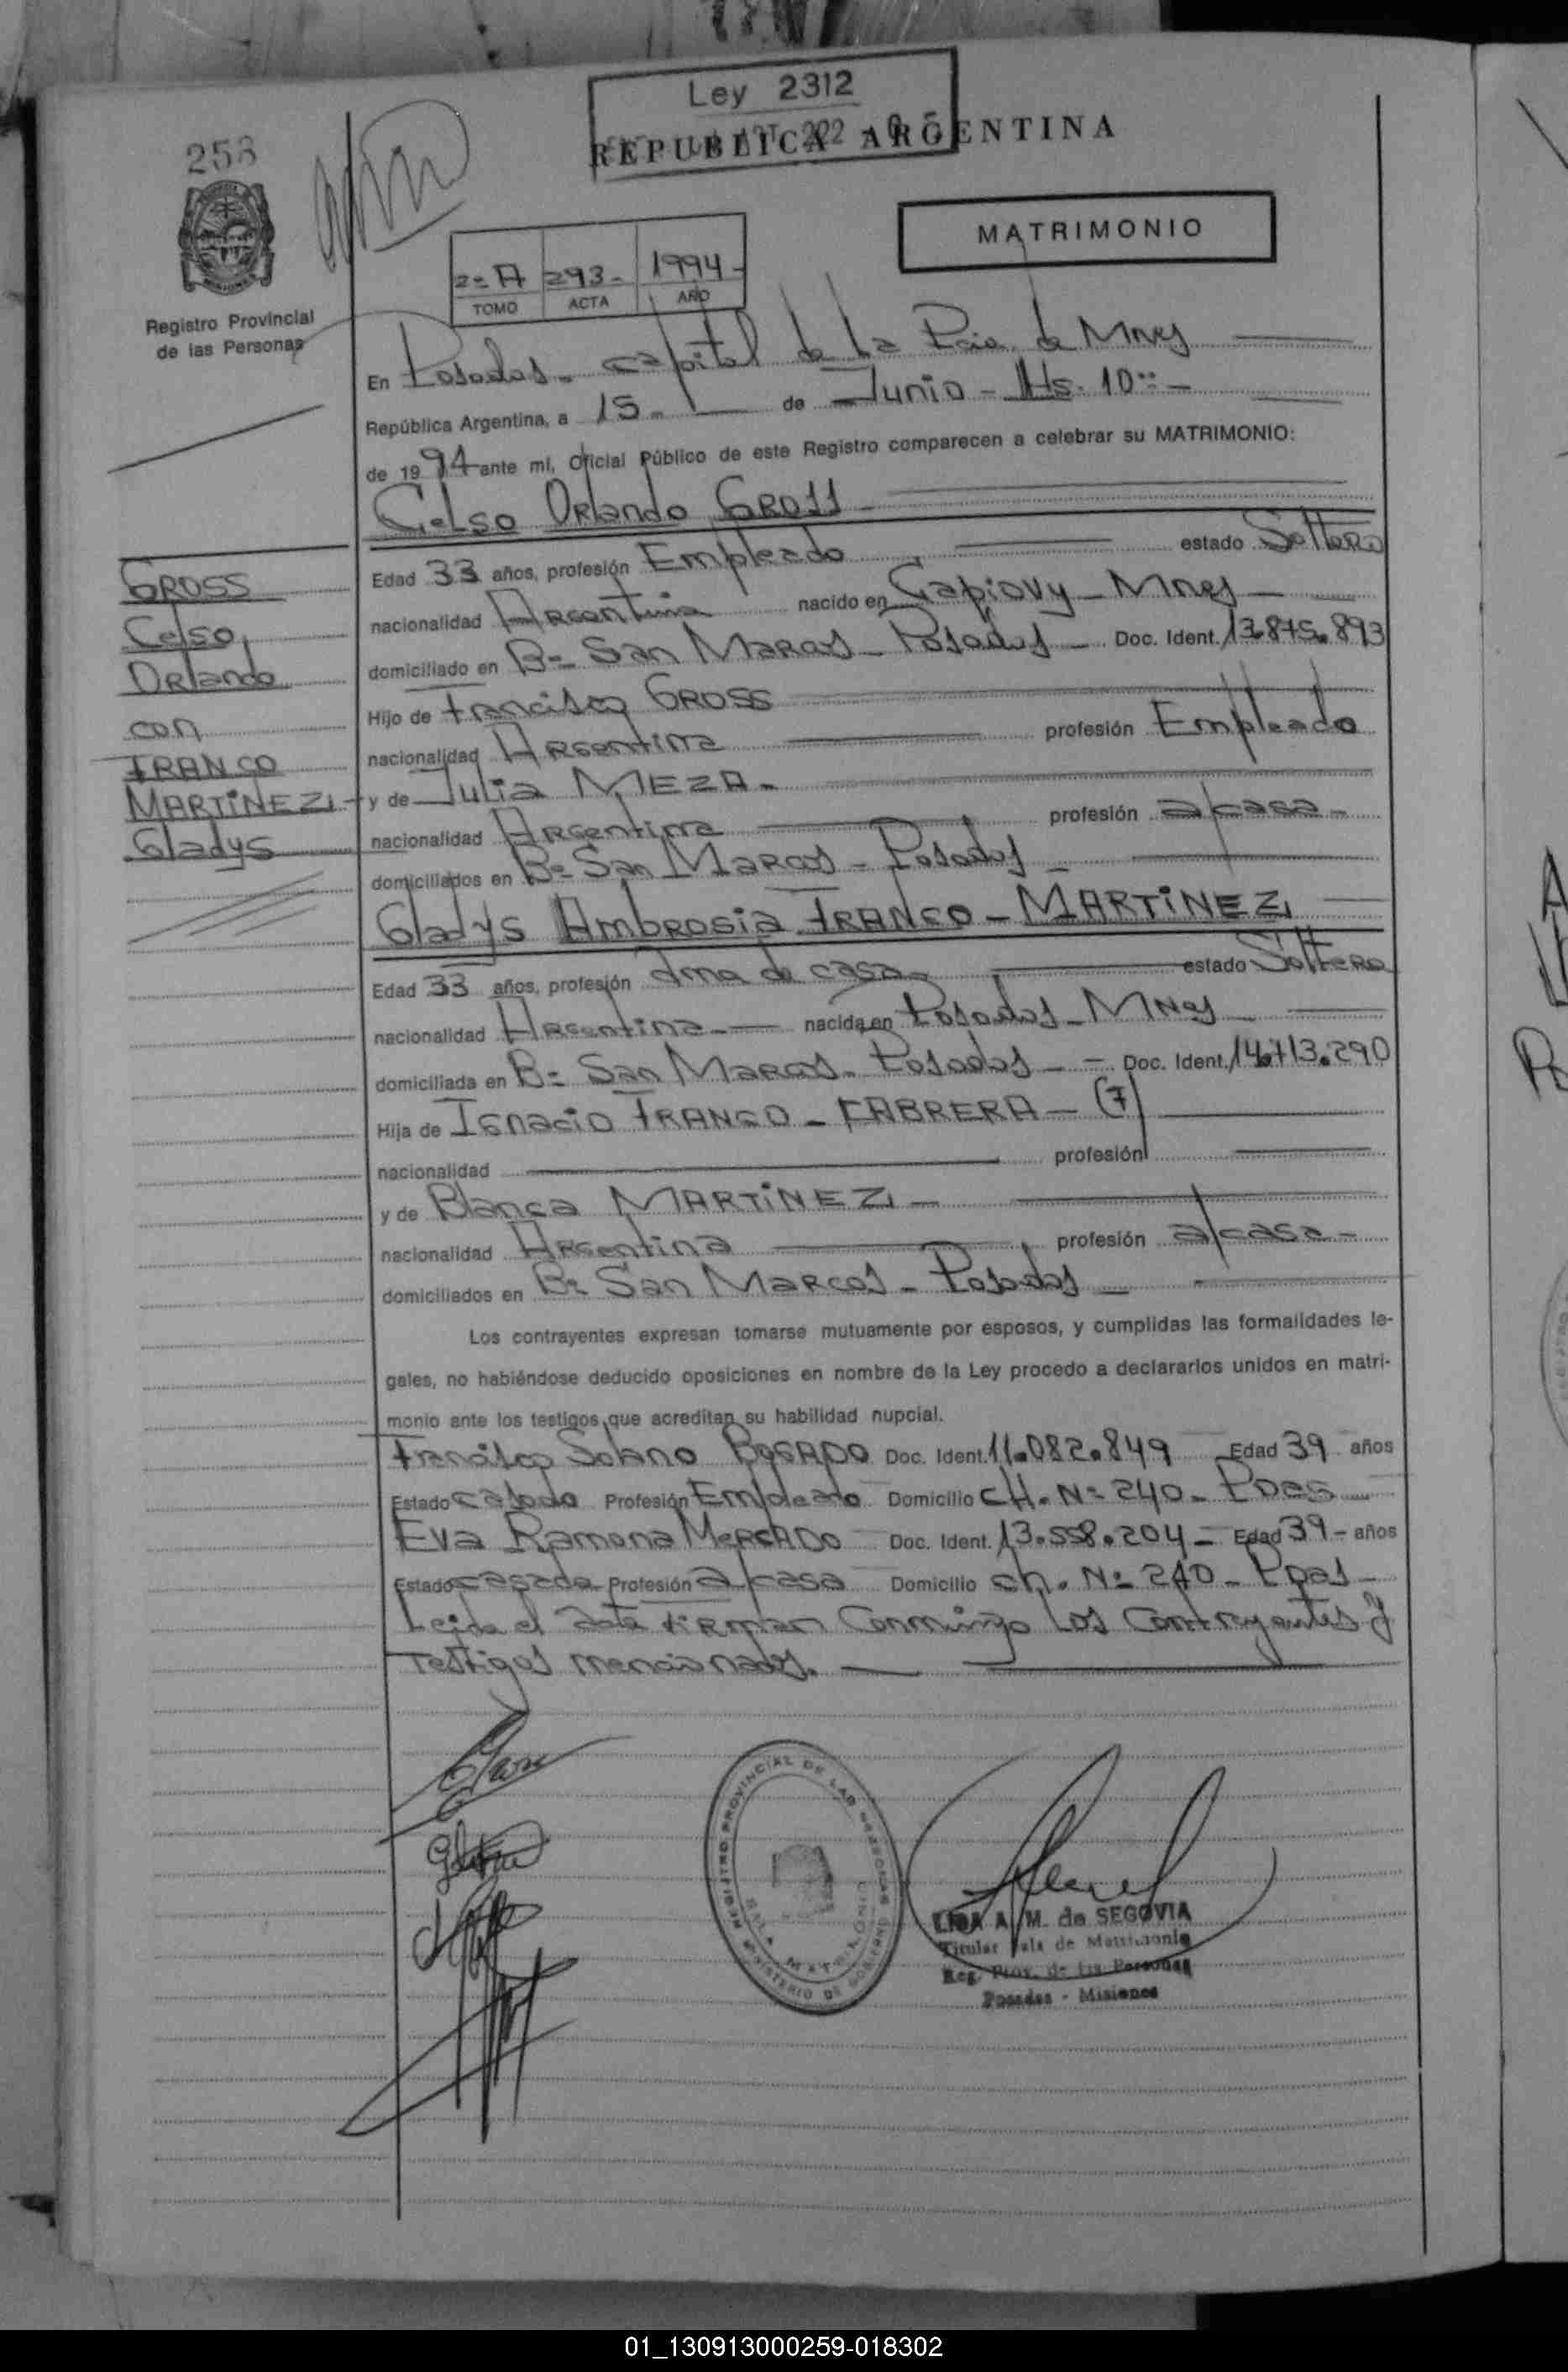 Ley 2312
REPUBLICA ARGENTINA
258
MATRIMONIO
2º A 293- 1994-
TOMO ACTA AÑO
Registro Provincial
de las Personas
En Posadas - capital de la Pcia. de Mnes
República Argentina, a 15 - de Junio - Hs. 10
de 1994 ante mí, Oficial Público de este Registro comparecen a celebrar su MATRIMONIO:
Celso Orlando GROSS
Edad 33 años, profesión Empleado estado Soltero
nacionalidad Argentina nacido en Capiovy - Mnes -
domiciliado en Bº San Marcos - Posadas - Doc. Ident. 13.875.893
Hijo de Francisco GROSS
nacionalidad Argentina profesión Empleado
y de Julia MEZA -
nacionalidad Argentina profesión a/casa -
domiciliados en Bº San Marcos - Posadas -
GROSS
Celso
Orlando
con
FRANCO
MARTiNEZ
Gladys
Gladys Ambrosia FRANCO - MARTiNEZ
Edad 33 años, profesión Ama de casa - estado Soltera
nacionalidad Argentina - nacida en Posadas - Mnes
domiciliada en Bº San Marcos - Posadas - Doc. Ident. 14.713.290
Hija de Ignacio FRANCO - CABRERA - (F)
nacionalidad profesión
y de Blanca MARTiNEZ -
nacionalidad Argentina profesión a/casa -
domiciliados en Bº San Marcos - Posadas -
Los contrayentes expresan tomarse mutuamente por esposos, y cumplidas las formalidades le-
gales, no habiéndose deducido oposiciones en nombre de la Ley procedo a declararlos unidos en matri-
monio ante los testigos que acreditan su habilidad nupcial.
Francisco Solano BOGADO Doc. Ident. 11.082.849 Edad 39 años
Estado casado Profesión Empleado Domicilio CH. Nº 240 - Pdas
Eva Ramona MERCADO Doc. Ident. 13.558.204 - Edad 39 - años
Estado casada Profesión a/casa Domicilio ch. Nº 240 - Pdas -
Leida el acta firman Conmingo los Contrayentes y
Testigos mencionados. -
REGISTRO PROVINCIAL DE LAS PERSONAS
MINISTERIO DE GOBIERNO
A. M. de SEGOVIA
Titular Sala de Matrimonio
Reg. Prov. de las Personas
Posadas - Misiones
01_130913000259-018302